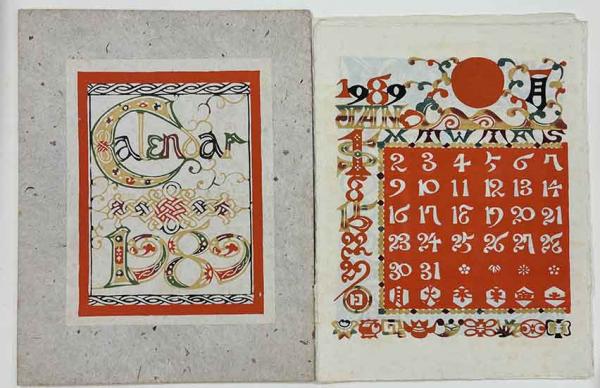 Calendar
1989
1989 一月
JAN
S M T W T F S
1 2 3 4 5 6 7
8 9 10 11 12 13 14
15 16 17 18 19 20 21
22 23 24 25 26 27 28
29 30 31
日 月 火 水 木 金 土